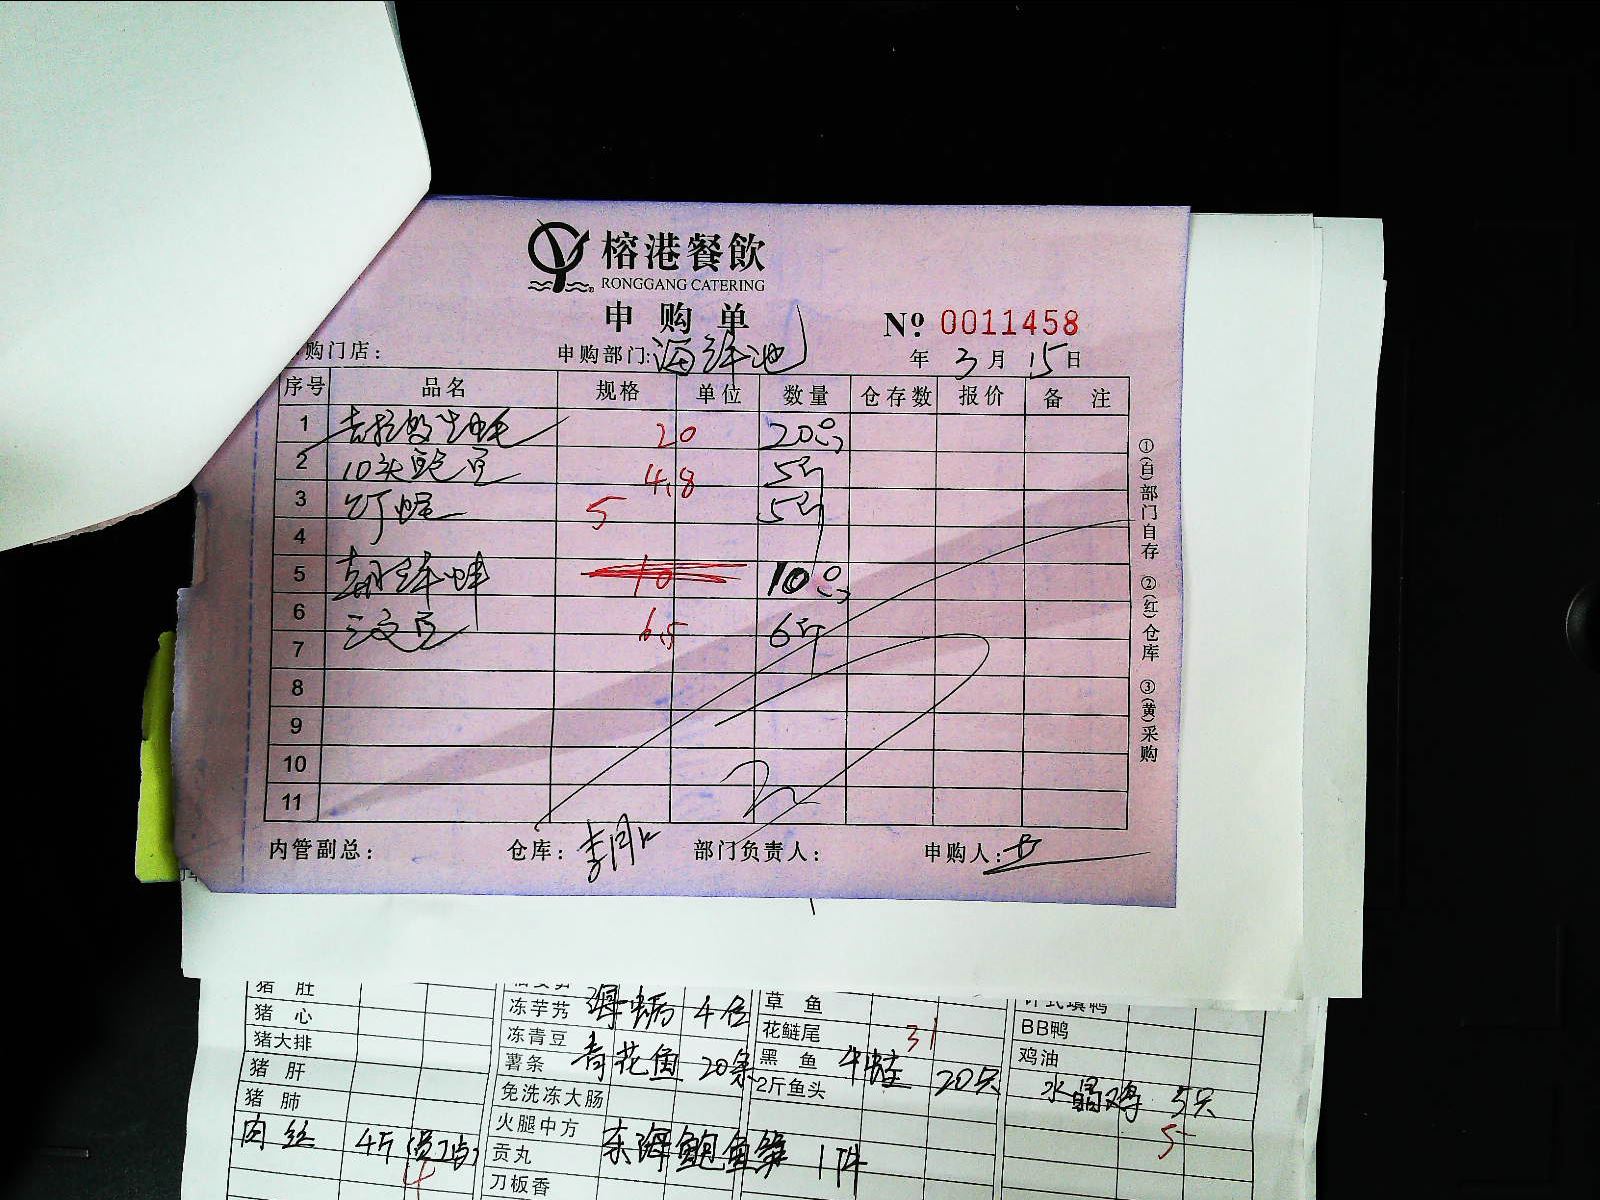 榕港餐飲
RONGGANG CATERING
申购单
№ 0011458
购门店：
申购部门：海洋池
年 3 月 15 日
序号 品名 规格 单位 数量 仓存数 报价 备注
1 吉拉多生蚝 20 20
2 10头鲍 4.8 5斤
3 5 5斤
4
5 10 10
6 6.5 6斤
7
8
9
10
11
①(白)部门自存 ②(红)仓库 ③(黄)采购
内管副总： 仓库： 部门负责人： 申购人：
猪肚 草鱼
猪心 冻芋艿 海蛎 4 花鲢尾 31 BB鸭
猪大排 冻青豆 黑鱼 牛蛙 20只 鸡油
猪肝 薯条 青花鱼 20条 2斤鱼头 水晶鸡 5只
猪肺 免洗冻大肠 5
肉丝 4斤 火腿中方
4 贡丸 东海鲍鱼 1件
刀板香